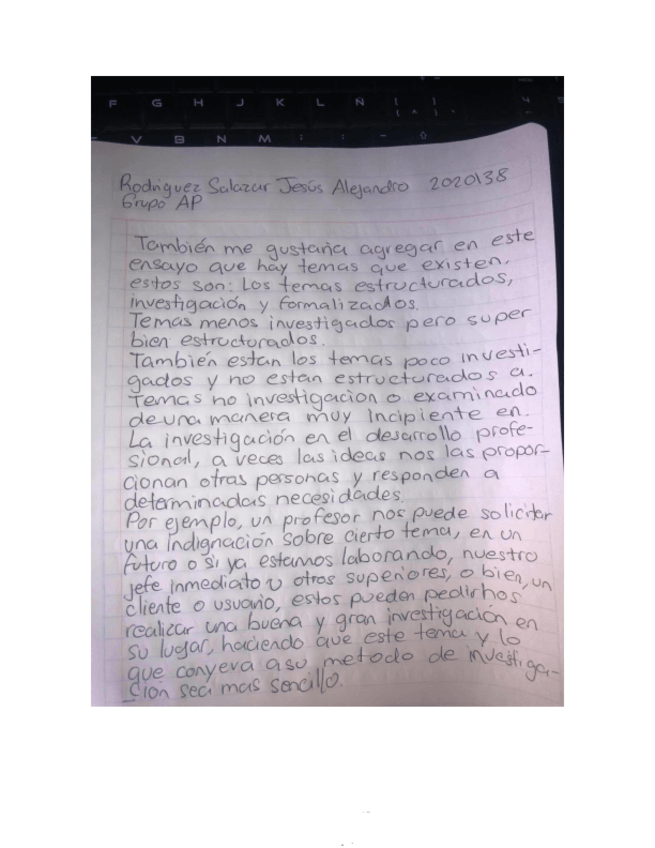 F G H J K L Ñ [ ]
V B N M ; : - ⇧
Rodriguez Salazar Jesús Alejandro 2020138
Grupo AP
También me gustaría agregar en este
ensayo que hay temas que existen,
estos son: Los temas estructurados,
investigación y formalizados.
Temas menos investigados pero super
bien estructurados.
También estan los temas poco investi-
gados y no están estructurados a.
Temas no investigacion o examinado
de una manera muy incipiente en.
La investigación en el desarrollo profe-
sional, a veces las ideas nos las propor-
cionan otras personas y responden a
determinadas necesidades.
Por ejemplo, un profesor nos puede solicitar
una Indignación sobre cierto tema, en un
futuro o si ya estamos laborando, nuestro
jefe inmediato u otros superiores, o bien, un
cliente o usuario, estos pueden pedirnos
realizar una buena y gran investigación en
su lugar, haciendo que este tema y lo
que conyeva a su metodo de investiga-
ción sea mas sencillo.